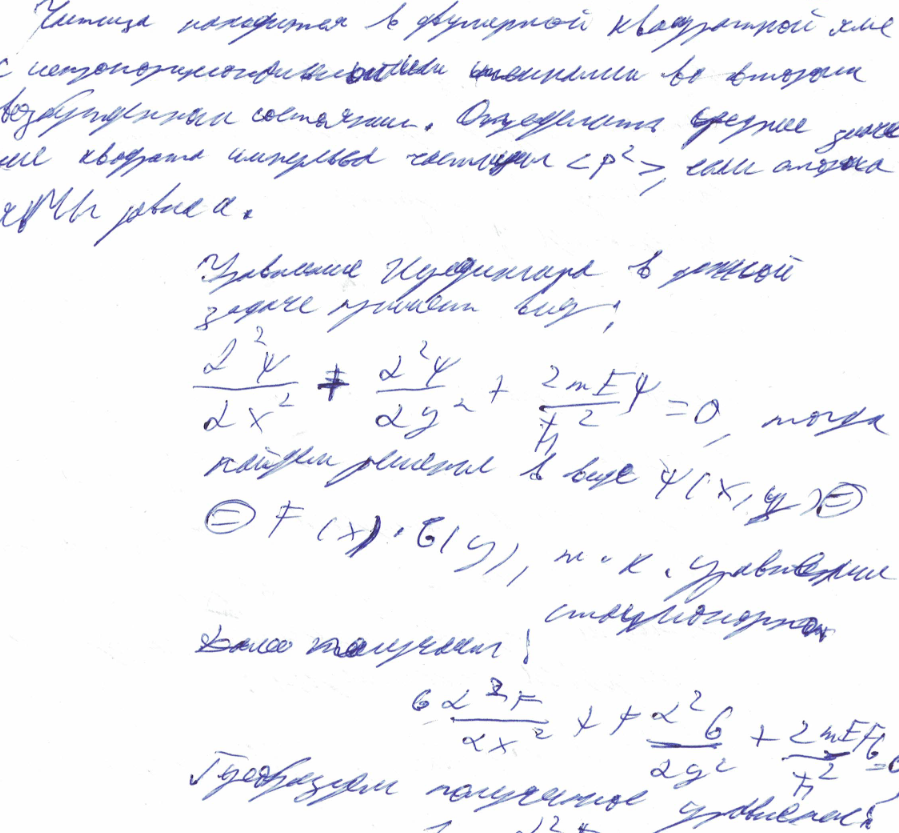 Частица находится в двумерной квадратной яме
с непроницаемыми стенками во втором
возбужденном состоянии. Определить среднее значе
ние квадрата импульса частицы <p²>, если сторона
ямы равна a.
Уравнение Шредингера в данной
задаче примет вид:
∂²Ψ/∂x² + ∂²Ψ/∂y² + 2mE/ħ² Ψ = 0, тогда
найдем решение в виде Ψ(x,y) =
= F(x)·G(y), т.к. уравнение
стационарно
Далее получаем:
G ∂²F/∂x² + F ∂²G/∂y² + 2mE/ħ² FG = 0
Преобразуем полученное уравнение